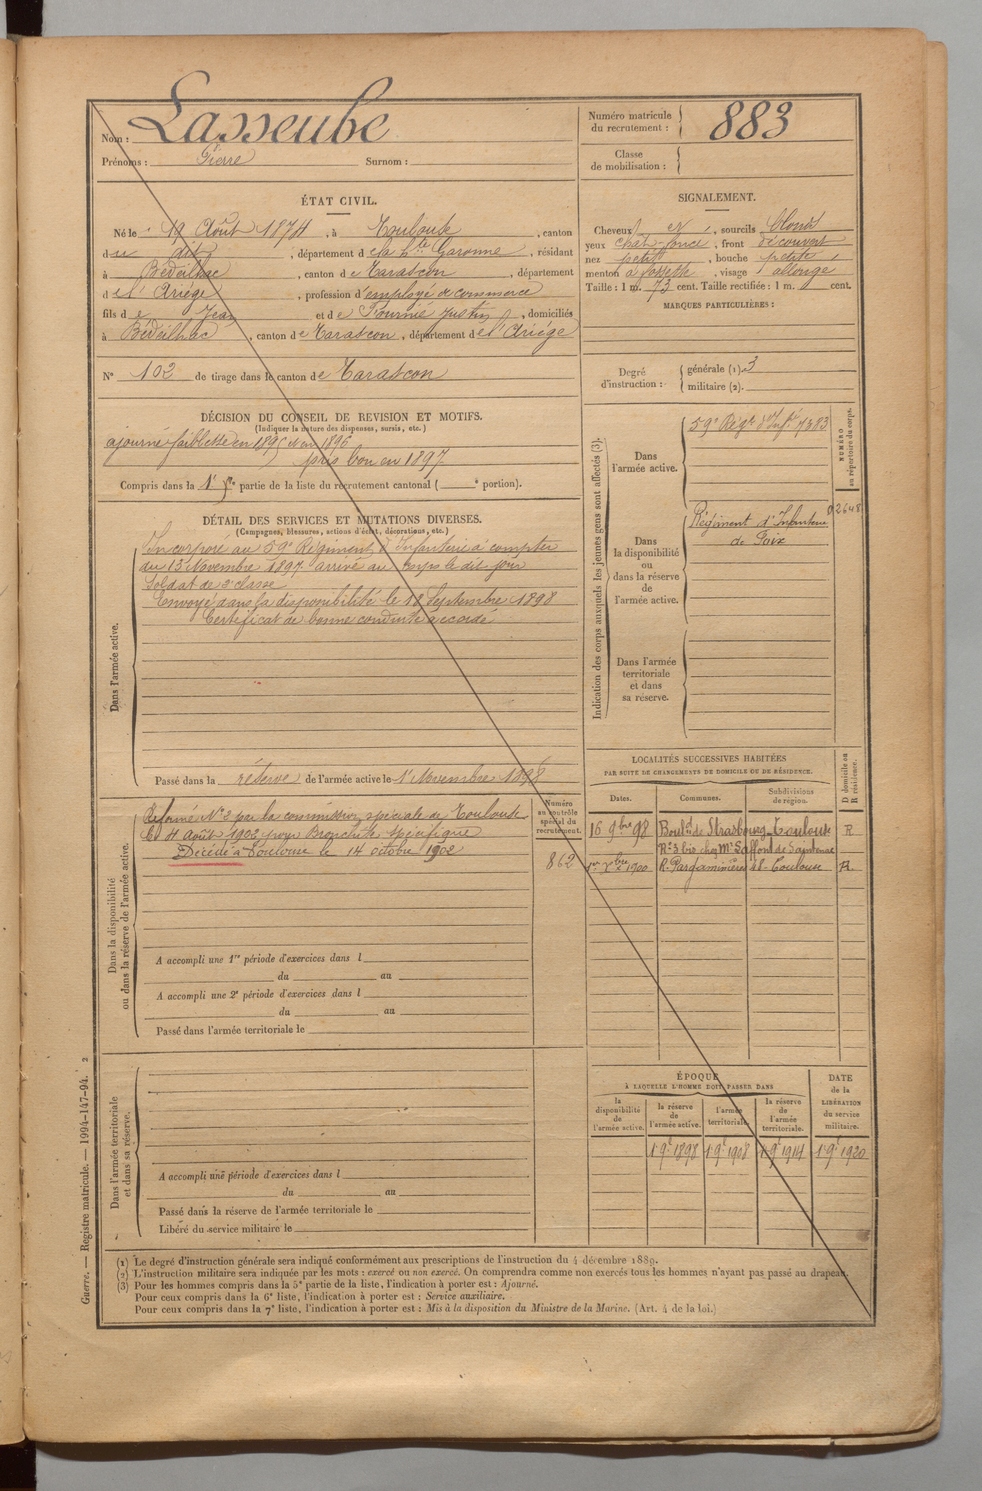 Nom : Lasseube
Prénoms : Pierre Surnom :
Numéro matricule du recrutement : 883
Classe de mobilisation :
ÉTAT CIVIL.
Né le 19 Août 1874, à Toulouse, canton
du dit, département de la Hte Garonne, résidant
à Bédeilhac, canton de Tarascon, département
de l'Ariége, profession d'employé de commerce
fils de Jean et de Fournié Justine, domiciliés
à Bédeilhac, canton de Tarascon, département de l'Ariége
N° 102 de tirage dans le canton de Tarascon
SIGNALEMENT.
Cheveux et, sourcils blonds
yeux chat. foncé, front découvert
nez petit, bouche petite,
menton à fossette, visage allongé
Taille : 1 m. 73 cent. Taille rectifiée : 1 m. cent.
MARQUES PARTICULIÈRES :
Degré d'instruction : générale (1). 3
militaire (2).
DÉCISION DU CONSEIL DE REVISION ET MOTIFS.
(Indiquer la nature des dispenses, sursis, etc.)
ajourné faiblesse en 1895 et en 1896
pris bon en 1897
Compris dans la 1re partie de la liste du recrutement cantonal ( e portion).
DÉTAIL DES SERVICES ET MUTATIONS DIVERSES.
(Campagnes, blessures, actions d'éclat, décorations, etc.)
Dans l'armée active.
Incorporé au 59e Régiment d'Infanterie à compter
du 13 Novembre 1897 arrivé au corps le dit jour
Soldat de 2e classe
Envoyé dans la disponibilité le 18 Septembre 1898
Certificat de bonne conduite accordé
Passé dans la réserve de l'armée active le 1er Novembre 1898
Indication des corps auxquels les jeunes gens sont affectés (3).
NUMÉRO au répertoire du corps.
Dans l'armée active.
59e Régt d'Infie 7383
Dans la disponibilité ou dans la réserve de l'armée active.
Régiment d'Infanterie
de Foix
02648
Dans l'armée territoriale et dans sa réserve.
Dans la disponibilité ou dans la réserve de l'armée active.
Numéro au contrôle spécial du recrutement.
862
Réformé N° 2 par la commission spéciale de Toulouse
le 4 Août 1902 pour Bronchite spécifique
Décédé à Toulouse le 14 octobre 1902
A accompli une 1re période d'exercices dans l
du au
A accompli une 2e période d'exercices dans l
du au
Passé dans l'armée territoriale le
LOCALITÉS SUCCESSIVES HABITÉES
PAR SUITE DE CHANGEMENTS DE DOMICILE OU DE RÉSIDENCE.
Dates. Communes. Subdivisions de région. D domicile ou R résidence.
16 9bre 98 Bould de Strasbourg Toulouse R
Rt 3 bis chez Mr Saffont de Saintenac
1er Xbre 1900 R. Pargaminières 48 - Toulouse R.
Dans l'armée territoriale et dans sa réserve.
A accompli une période d'exercices dans l
du au
Passé dans la réserve de l'armée territoriale le
Libéré du service militaire le
ÉPOQUE
À LAQUELLE L'HOMME DOIT PASSER DANS
DATE de la LIBÉRATION du service militaire.
la disponibilité de l'armée active.
la réserve de l'armée active.
l'armée territoriale.
la réserve de l'armée territoriale.
1 9e 1898 1 9e 1908 1 9e 1914 1 9e 1920
(1) Le degré d'instruction générale sera indiqué conformément aux prescriptions de l'instruction du 4 décembre 1889.
(2) L'instruction militaire sera indiquée par les mots : exercé ou non exercé. On comprendra comme non exercés tous les hommes n'ayant pas passé au drapeau.
(3) Pour les hommes compris dans la 5e partie de la liste, l'indication à porter est : Ajourné.
Pour ceux compris dans la 6e liste, l'indication à porter est : Service auxiliaire.
Pour ceux compris dans la 7e liste, l'indication à porter est : Mis à la disposition du Ministre de la Marine. (Art. 4 de la loi.)
Guerre. — Registre matricule. — 1994-147-94. 2